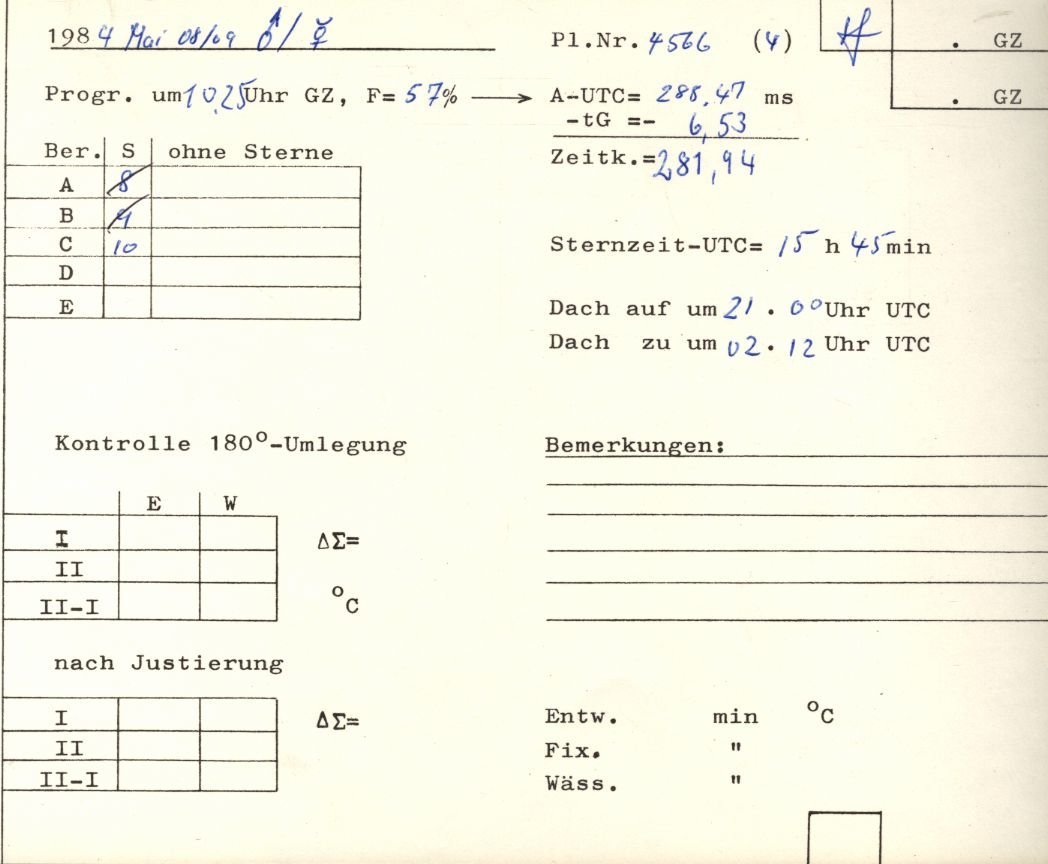 1984 Mai 08/09 ♂/☿ Pl.Nr. 4566 (4) . GZ
Progr. um 10.25 Uhr GZ, F= 57% → A-UTC= 288,47 ms . GZ
-tG =- 6,53
Ber. S ohne Sterne Zeitk.= 281,94
A 8
B 9
C 10 Sternzeit-UTC= 15 h 45 min
D
E Dach auf um 21 . 00 Uhr UTC
Dach zu um 02 . 12 Uhr UTC
Kontrolle 180°-Umlegung Bemerkungen:
E W
I ΔΣ=
II
II-I °C
nach Justierung
I ΔΣ= Entw. min °C
II Fix. "
II-I Wäss. "